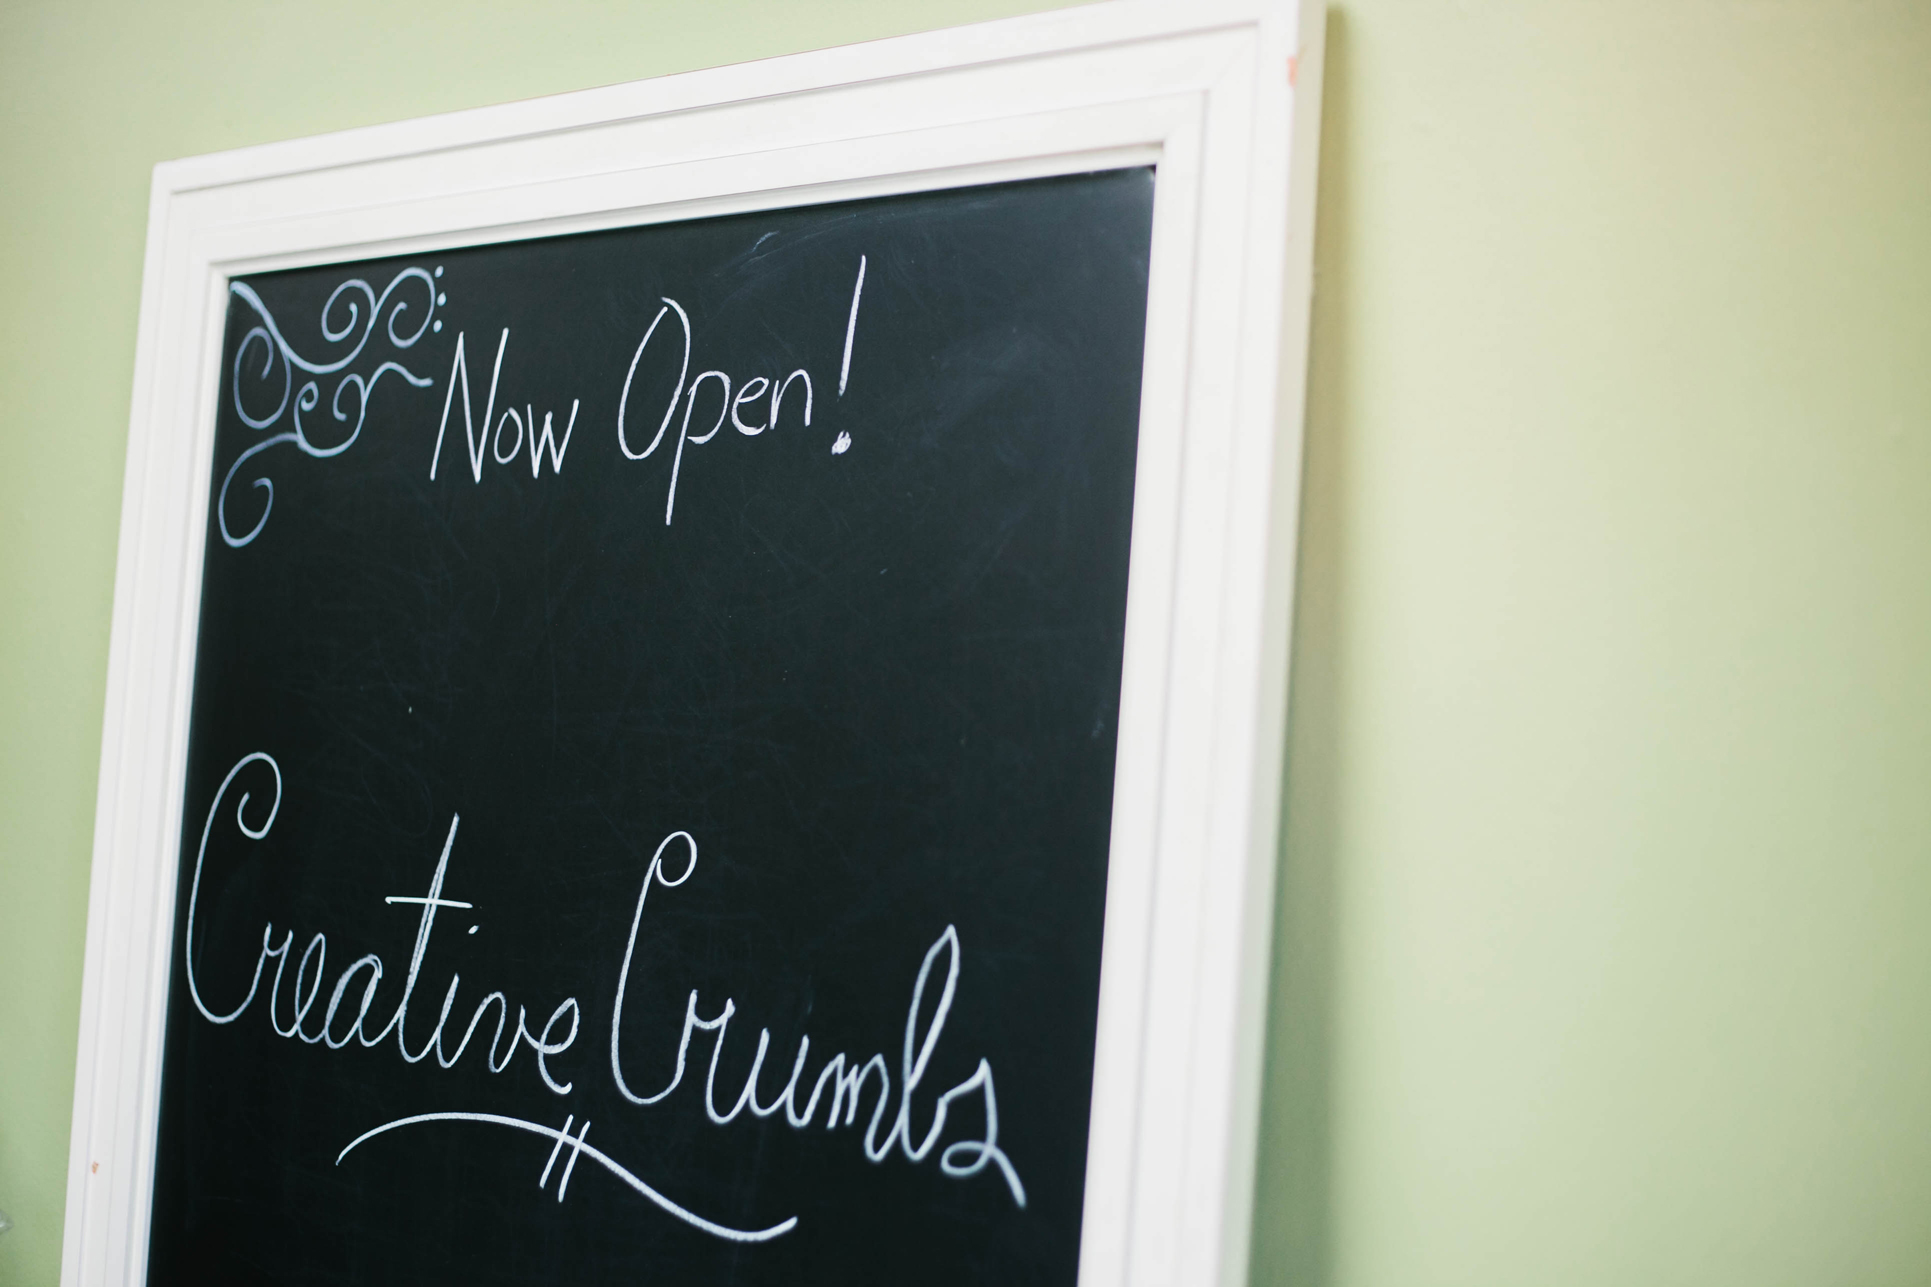 Now Open!
Creative Crumbs